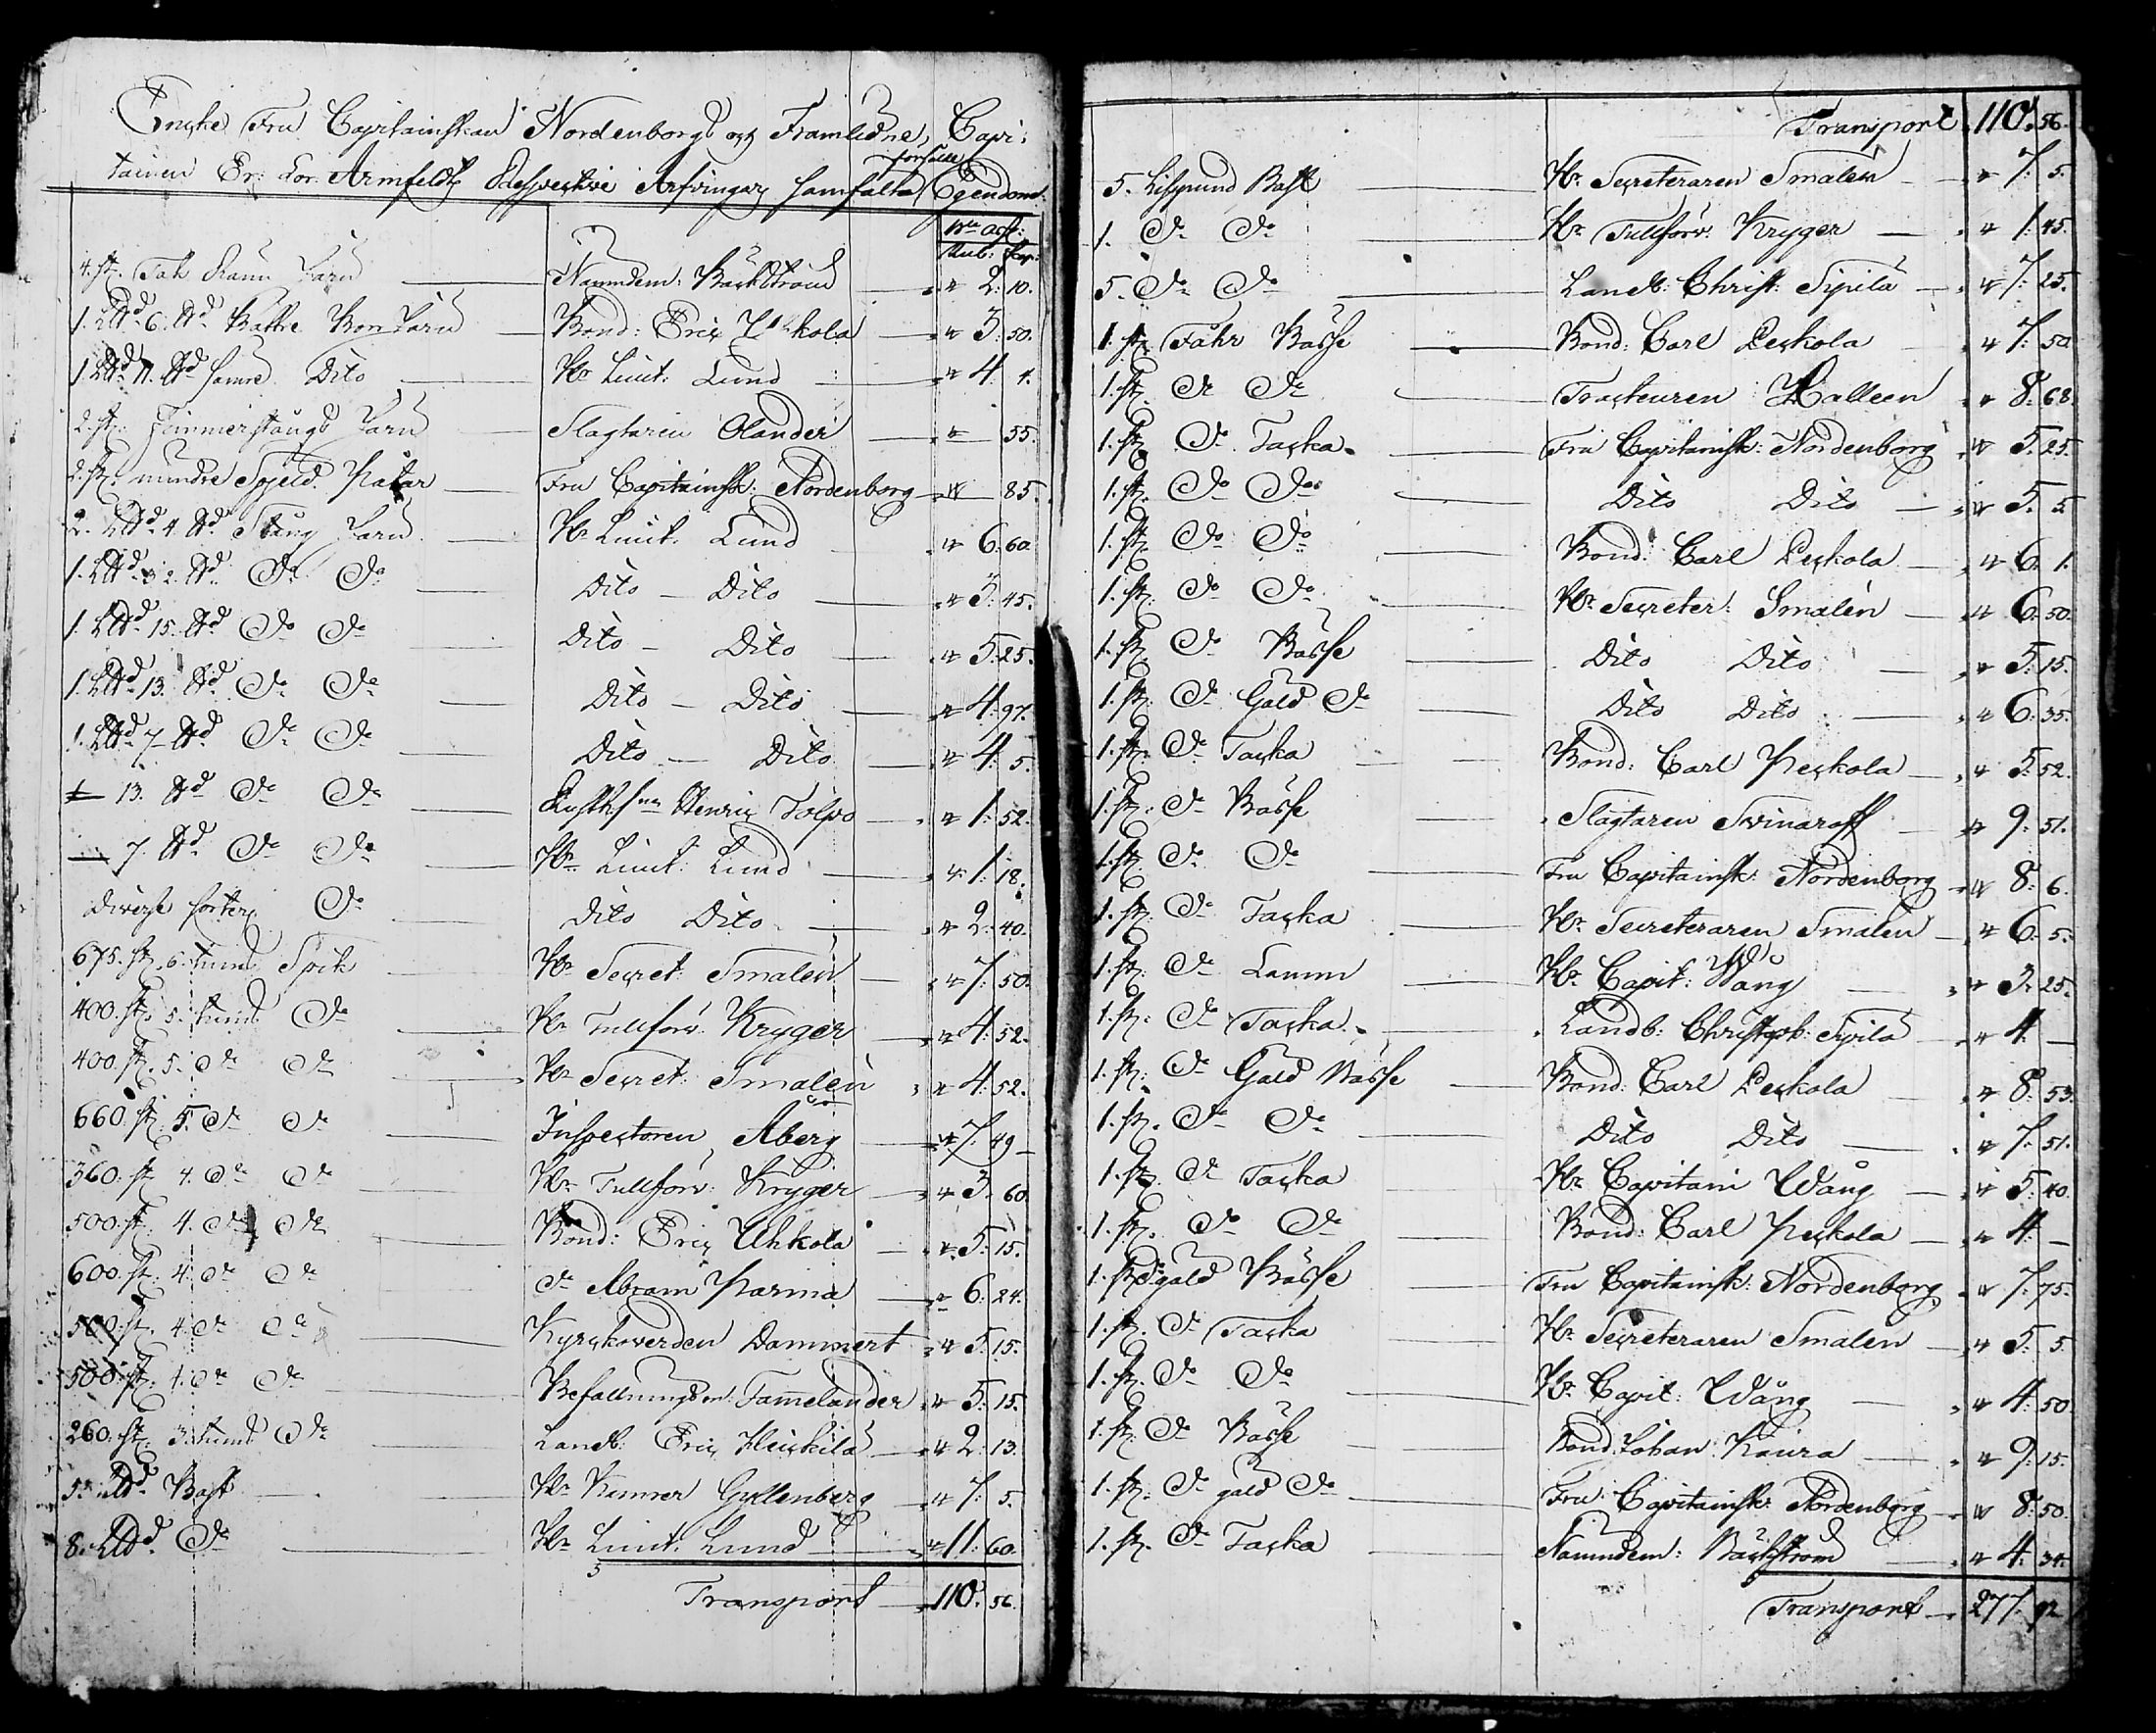 Encke Fru Capitainskan Nordenborgs och Framledne Capi-
tainen Er: Lor: Armfeldtz Respective Arfvingars samfälta försålde Egendom.
B:co Ass:
Rub: Kop:
4. st. Tak Ränn Järn — Nämndem: Bäckström — 2. 10.
1. L℔d 6. ℔d Bättre Bon Järn — Bond: Eric Uhkola — 3. 50.
1 L℔d 11. ℔d sämre Dito — H:r Lieut: Lund — 4. 1.
2. st. Timmerstångs Järn — Slagtaren Olander — 55.
2. st. mindre Spjeld Plåtar — Fru Capitainsk: Nordenborg — 85.
2. L℔d 4. ℔d Stång Järn — H:r Lieut. Lund — 6. 60.
1. L℔d 2. ℔d D:o D:o — Dito — Dito — 3. 45.
1. L℔d 15. ℔d D:o D:o — Dito — Dito — 5. 25.
1. L℔d 13. ℔d D:o D:o — Dito — Dito — 4. 97.
1. L℔d 7 ℔d D:o D:o — Dito — Dito — 4. 5.
— 13. ℔d D:o D:o — Henric Tolpo — 1. 52.
— 7. ℔d D:o D:o — H:r Lieut: Lund — 1. 18.
Diverse sorter D:o — Dito Dito — 2. 40.
675. st. 6. tums Spik — H:r Secret: Smalén — 7. 50.
400. st. 5. tums D:o — H:r Tullförv: Kryger — 4. 52.
400. st. 5. D:o D:o — H:r Secret: Smalén — 4. 52.
660. st. 5. D:o D:o — Inspectoren Åberg — 7. 49
360. st. 4. D:o D:o — H:r Tullförv: Kryger — 3. 60.
500. st. 4. D:o D:o — Bond: Eric Uhkola — 5. 15.
600. st. 4. D:o D:o — D:o Abram Parma — 6. 24.
500. st. 4. D:o D:o — Kyrckoverden Dammert — 5. 15.
500. st. 4. D:o D:o — Befallningsm: Tamelander — 5. 15.
260. st. 3. tums D:o — Landb: Eric Heickilä — 2. 13.
5. L℔d Bast — H:r Kamrer Gyllenberg — 7. 5.
8. L℔d D:o — H:r Lieut. Lund — 11. 60.
Transport — 110. 56.
Transport 110. 56.
5. Lispund Bast — H:r Secreteraren Smalén — 7. 5.
1. D:o D:o — H:r Tullförv: Kryger — 1. 45.
5. D:o D:o — Landb: Christ: Sipilä — 7. 25.
1. st. Fåhr Basse — Bond: Carl Peckola — 7. 50.
1. st. D:o D:o — Tracteuren Halleen — 8. 68.
1. st. D:o Tacka — Fru Capitainsk: Nordenborg — 5. 25.
1. st. D:o D:o — Dito Dito — 5. 5
1. st. D:o D:o — Bond: Carl Peckola — 6. 1.
1. st. D:o D:o — H:r Secreter: Smalén — 6. 50.
1. st. D:o Basse — Dito Dito — 5. 15.
1. st. D:o Gäld D:o — Dito Dito — 6. 35.
1. st. D:o Tacka — Bond: Carl Peckola — 5. 52.
1. st. D:o Basse — Slagtaren Svinaroff — 9. 51.
1. st. D:o D:o — Fru Capitainsk: Nordenborg — 8. 6.
1. st. D:o Tacka — H:r Secreteraren Smalén — 6. 5.
1. st. D:o Lamm — H:r Capit: Wång — 3. 25.
1. st. D:o Tacka — Landb: Christoph: Sipilä — 4. —
1. st. D:o Gäld Basse — Bond: Carl Peckola — 8. 53.
1. st. D:o D:o — Dito Dito — 7. 51.
1. st. D:o Tacka — H:r Capitain Wång — 5. 40.
1. st. D:o D:o — Bond: Carl Peckola — 4. —
1. st. D:o gäld Basse — Fru Capitainsk: Nordenborg — 7. 75.
1. st. D:o Tacka — H:r Secreteraren Smalén — 5. 5
1. st. D:o D:o — H:r Capit: Wång — 4. 50
1. st. D:o Basse — Bond: Johan Kaira — 9. 15.
1. st. D:o gäld D:o — Fru Capitainsk: Nordenborg — 8. 50.
1. st. D:o Tacka — Nämndem: Bäckström — 4. 34.
Transport — 277. 92